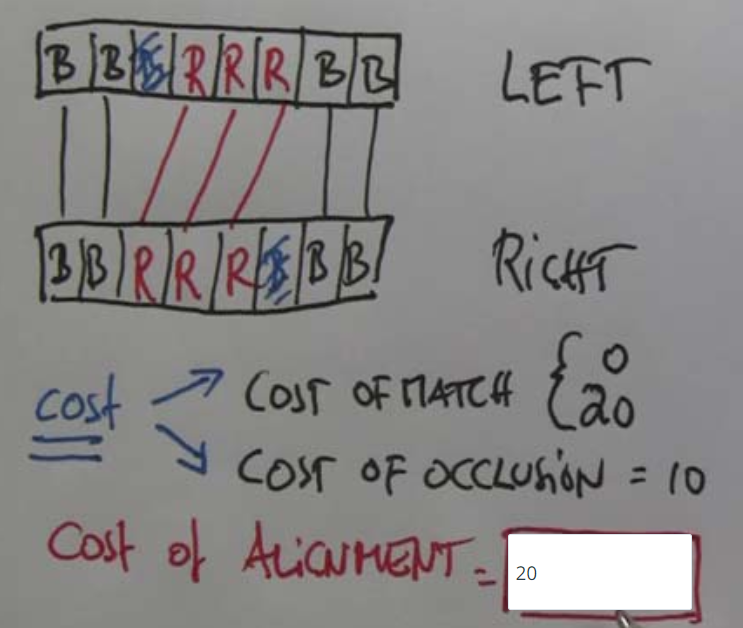 B B B R R R B B LEFT
B B R R R B B B RIGHT
COST COST OF MATCH { 0
20
COST OF OCCLUSION = 10
COST OF ALIGNMENT = 20